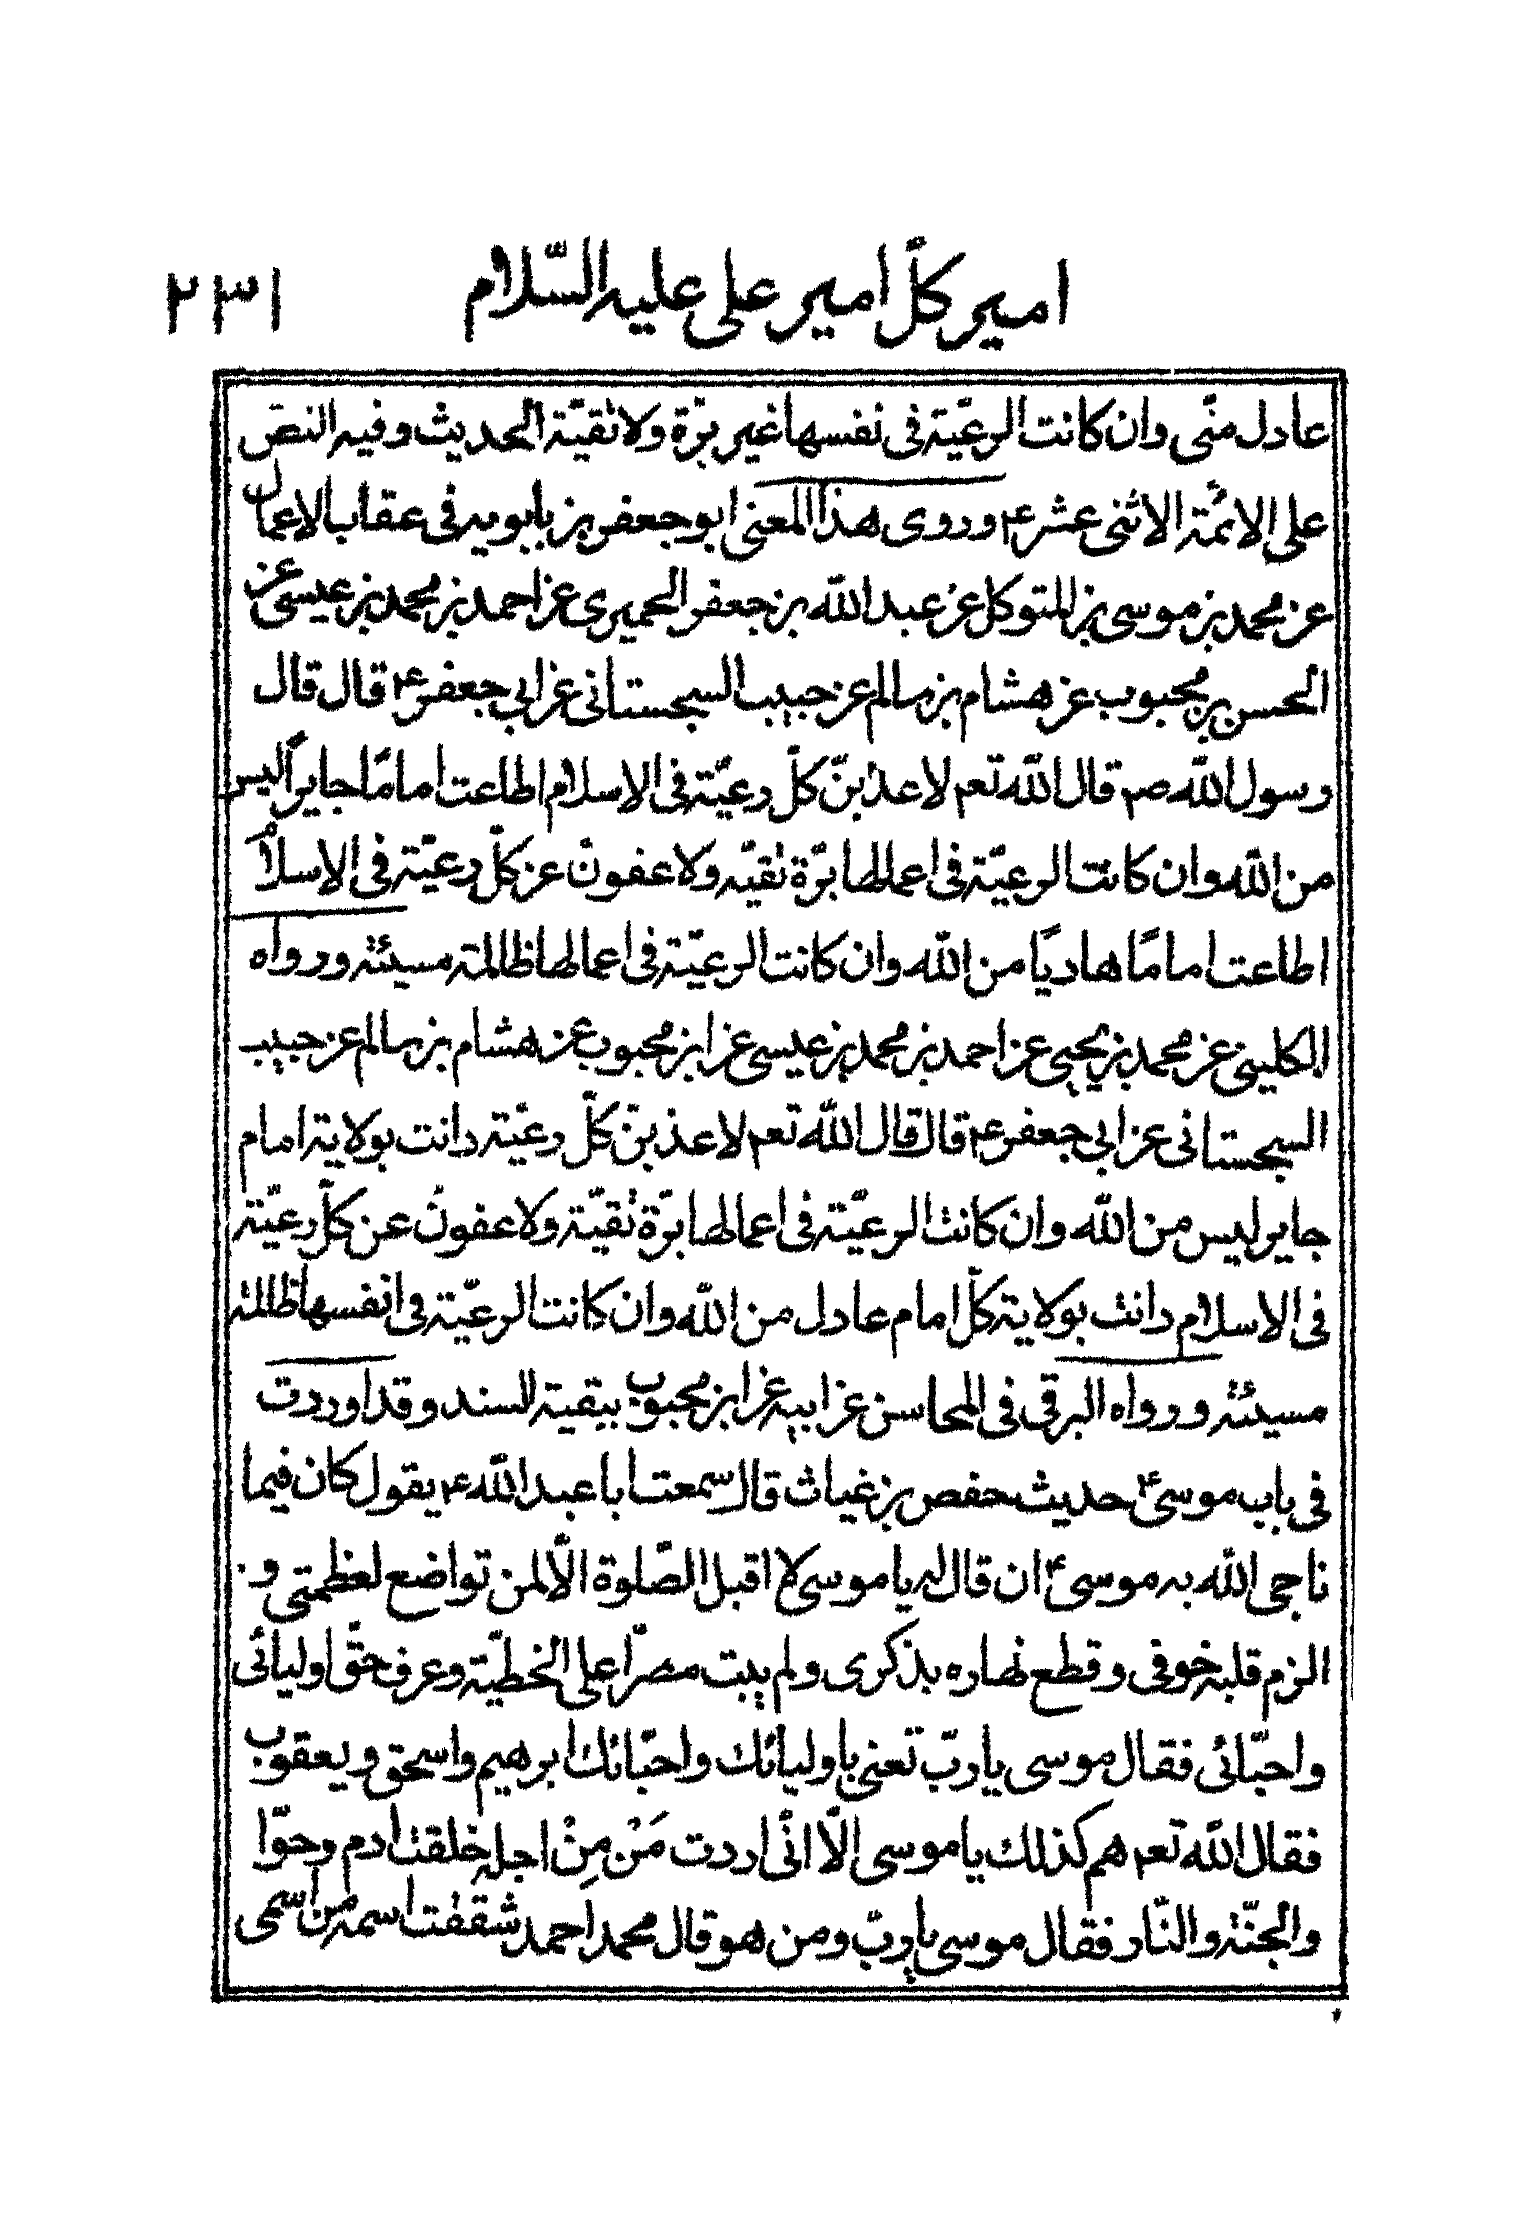 امير كلّ امير على عليه السّلام ٢٣١
عادل منّى وان كانت الرعيّة فى نفسها غير برّة ولا تقيّة الحديث وفيه النصّ
على الائمّة الاثنى عشر ع وروى هذا المعنى ابو جعفر بن بابويه فى عقاب الاعمال
عن محمد بن موسى بن المتوكل عن عبد الله بن جعفر الحميرى عن احمد بن محمد بن عيسى عن
الحسن بن محبوب عن هشام بن سالم عن حبيب السجستانى عن ابى جعفر ع قال قال
رسول الله ص قال الله تعم لاعذبنّ كلّ رعيّة فى الاسلام اطاعت اماما جايراً ليس
من الله وان كانت الرعيّة فى اعمالها برّة تقيّه ولاعفون عن كلّ رعيّة فى الاسلام
اطاعت امامًا هاديًا من الله وان كانت الرعيّة فى اعمالها ظالمة مسيئة ورواه
الكلينى عن محمد بن يحيى عن احمد بن محمد بن عيسى عن ابن محبوب عن هشام بن سالم عن حبيب
السجستانى عن ابى جعفر ع قال قال الله تعم لاعذبنّ كلّ رعيّة دانت بولاية امام
جاير ليس من الله وان كانت الرعيّة فى اعمالها برّة تقيّة ولاعفونّ عن كلّ رعيّة
فى الاسلام دانت بولاية كلّ امام عادل من الله وان كانت الرعيّة فى انفسها ظالمة
مسيئة ورواه البرقى فى المحاسن عن ابيه عن ابن محبوب ببقية السند وقد اوردت
فى باب موسى ع حديث حفص بن غياث قال سمعت ابا عبد الله ع يقول كان فيما
ناجى الله به موسى ع ان قال له يا موسى لا اقبل الصّلوة الّا لمن تواضع لعظمتى و
الزم قلبه خوفى وقطع نهاره بذكرى ولم يبت مصرّا على الخطيّة وعرف حقّ اوليائى
واحبّائى فقال موسى يا ربّ تعنى باوليائك واحبّائك ابرهيم واسحق ويعقوب
فقال الله تعم هم كذلك يا موسى الّا انّى اردت مَنْ مِنْ اجله خلقت ادم وحوّا
والجنّة والنّار فقال موسى يا ربّ ومن هو قال محمد احمد شققت اسمه من اسمى